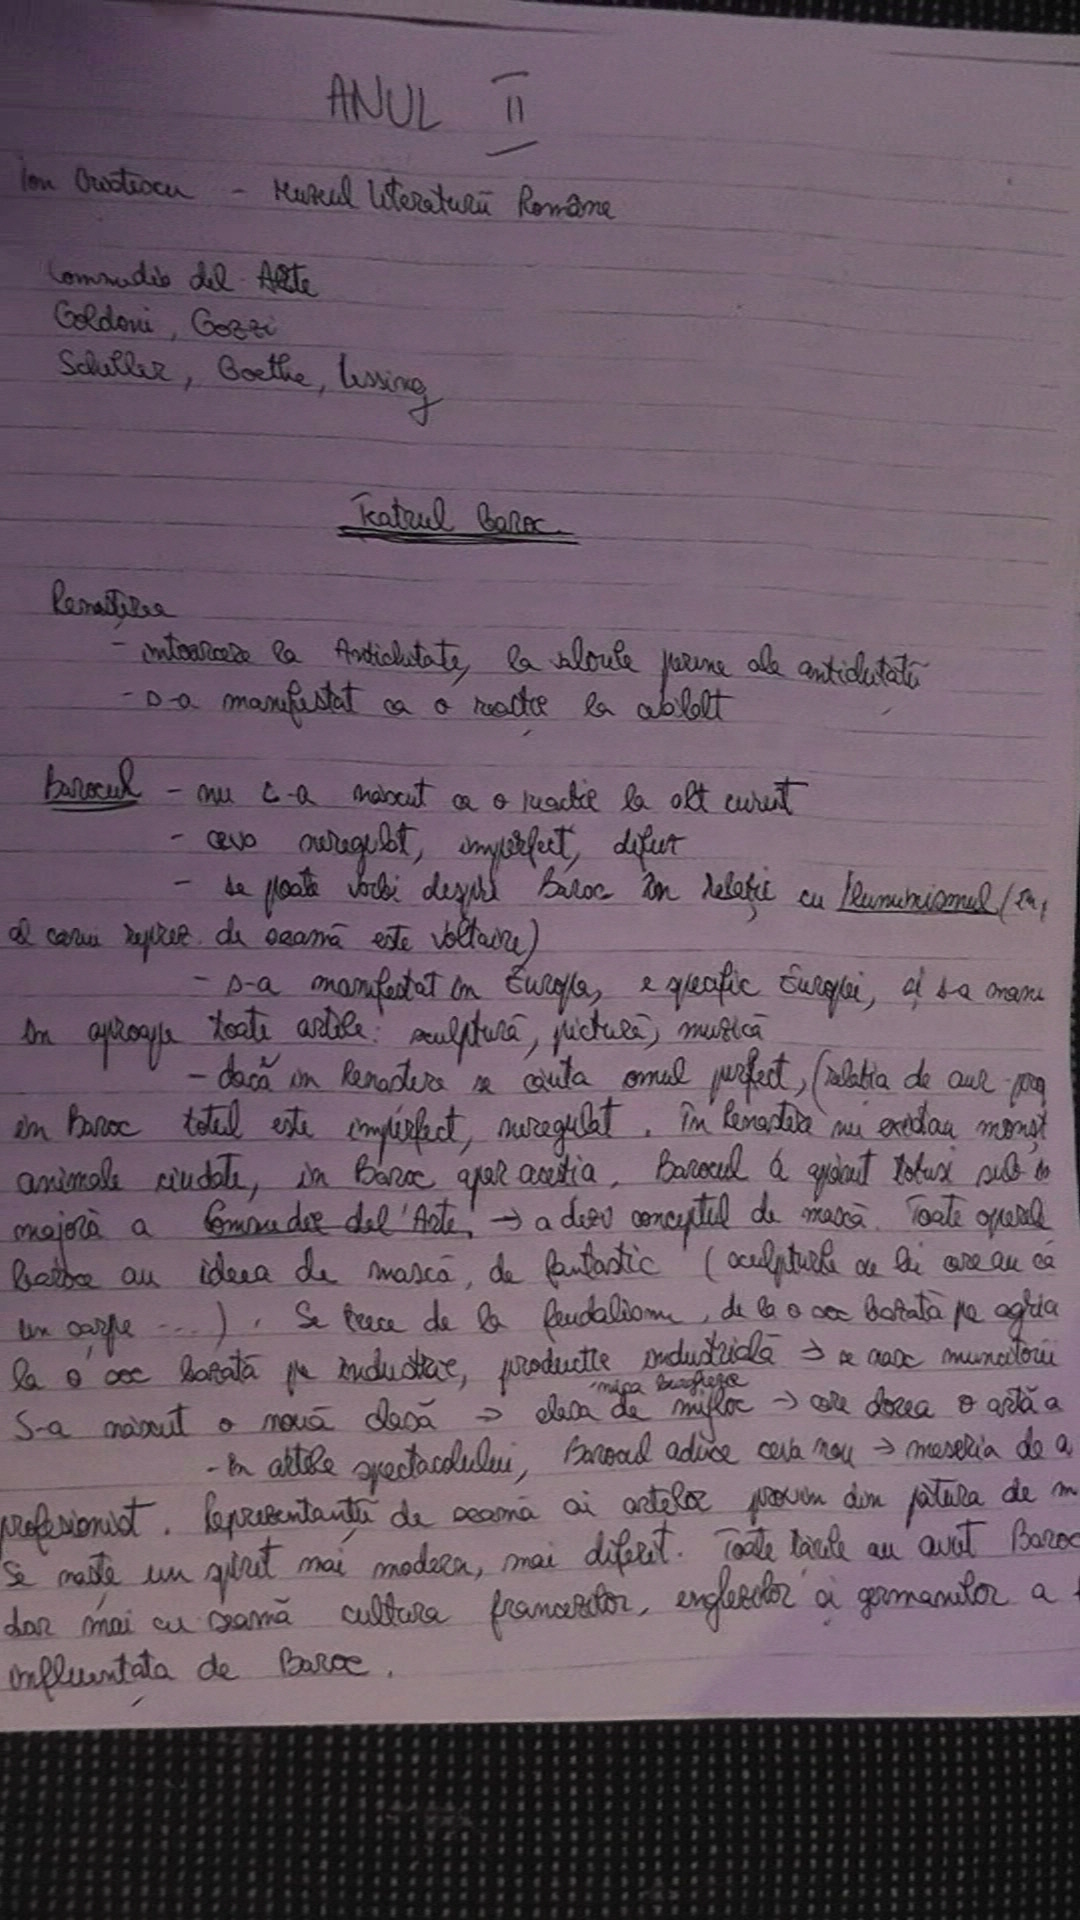 ANUL II
Ion Cristescu - Muzeul Literaturii Române
Commedia del Arte
Goldoni, Gozzi
Schiller, Goethe, Lessing
Teatrul Baroc
Renașterea
- întoarcere la Antichitate, la valorile perene ale antichitatii
- s-a manifestat ca o reacție la altceva
Barocul - nu s-a născut ca o reactie la alt curent
- ceva neregulat, imperfect, diferit
- se poate vorbi despre Baroc în relație cu Iluminismul (
al carui reprez. de seamă este Voltaire)
- s-a manifestat în Europa, e specific Europei, și s-a mani
în aproape toate artele: sculptură, pictură, muzică
- dacă în Renastere se căuta omul perfect, (relatia de aur
în Baroc totul este imperfect, neregulat. În Renastere nu existau monșt
animale ciudate, în Baroc apar acestia. Barocul a apărut totusi sub
majoră a Commediei del'Arte, → a dezv conceptul de mască. Toate operele
baroce au ideea de mască, de fantastic (sculpturile cu lei care au că
un șarpe ...). Se trece de la feudalism, de la o soc bazată pe agricu
la o soc bazată pe industrie, productie industrială → se nasc muncitorii
mica burghezie
S-a născut o nouă clasă → clasa de mijloc → care dorea o artă a
- În artele spectacolului, Barocul aduce ceva nou → meseria de a
profesionist. Reprezentanții de seamă ai artelor provin din pătura de m
Se naște un spirit mai modern, mai diferit. Toate tările au avut Baroc
dar mai cu seamă cultura francezilor, englezilor și germanilor a f
influențata de Baroc.